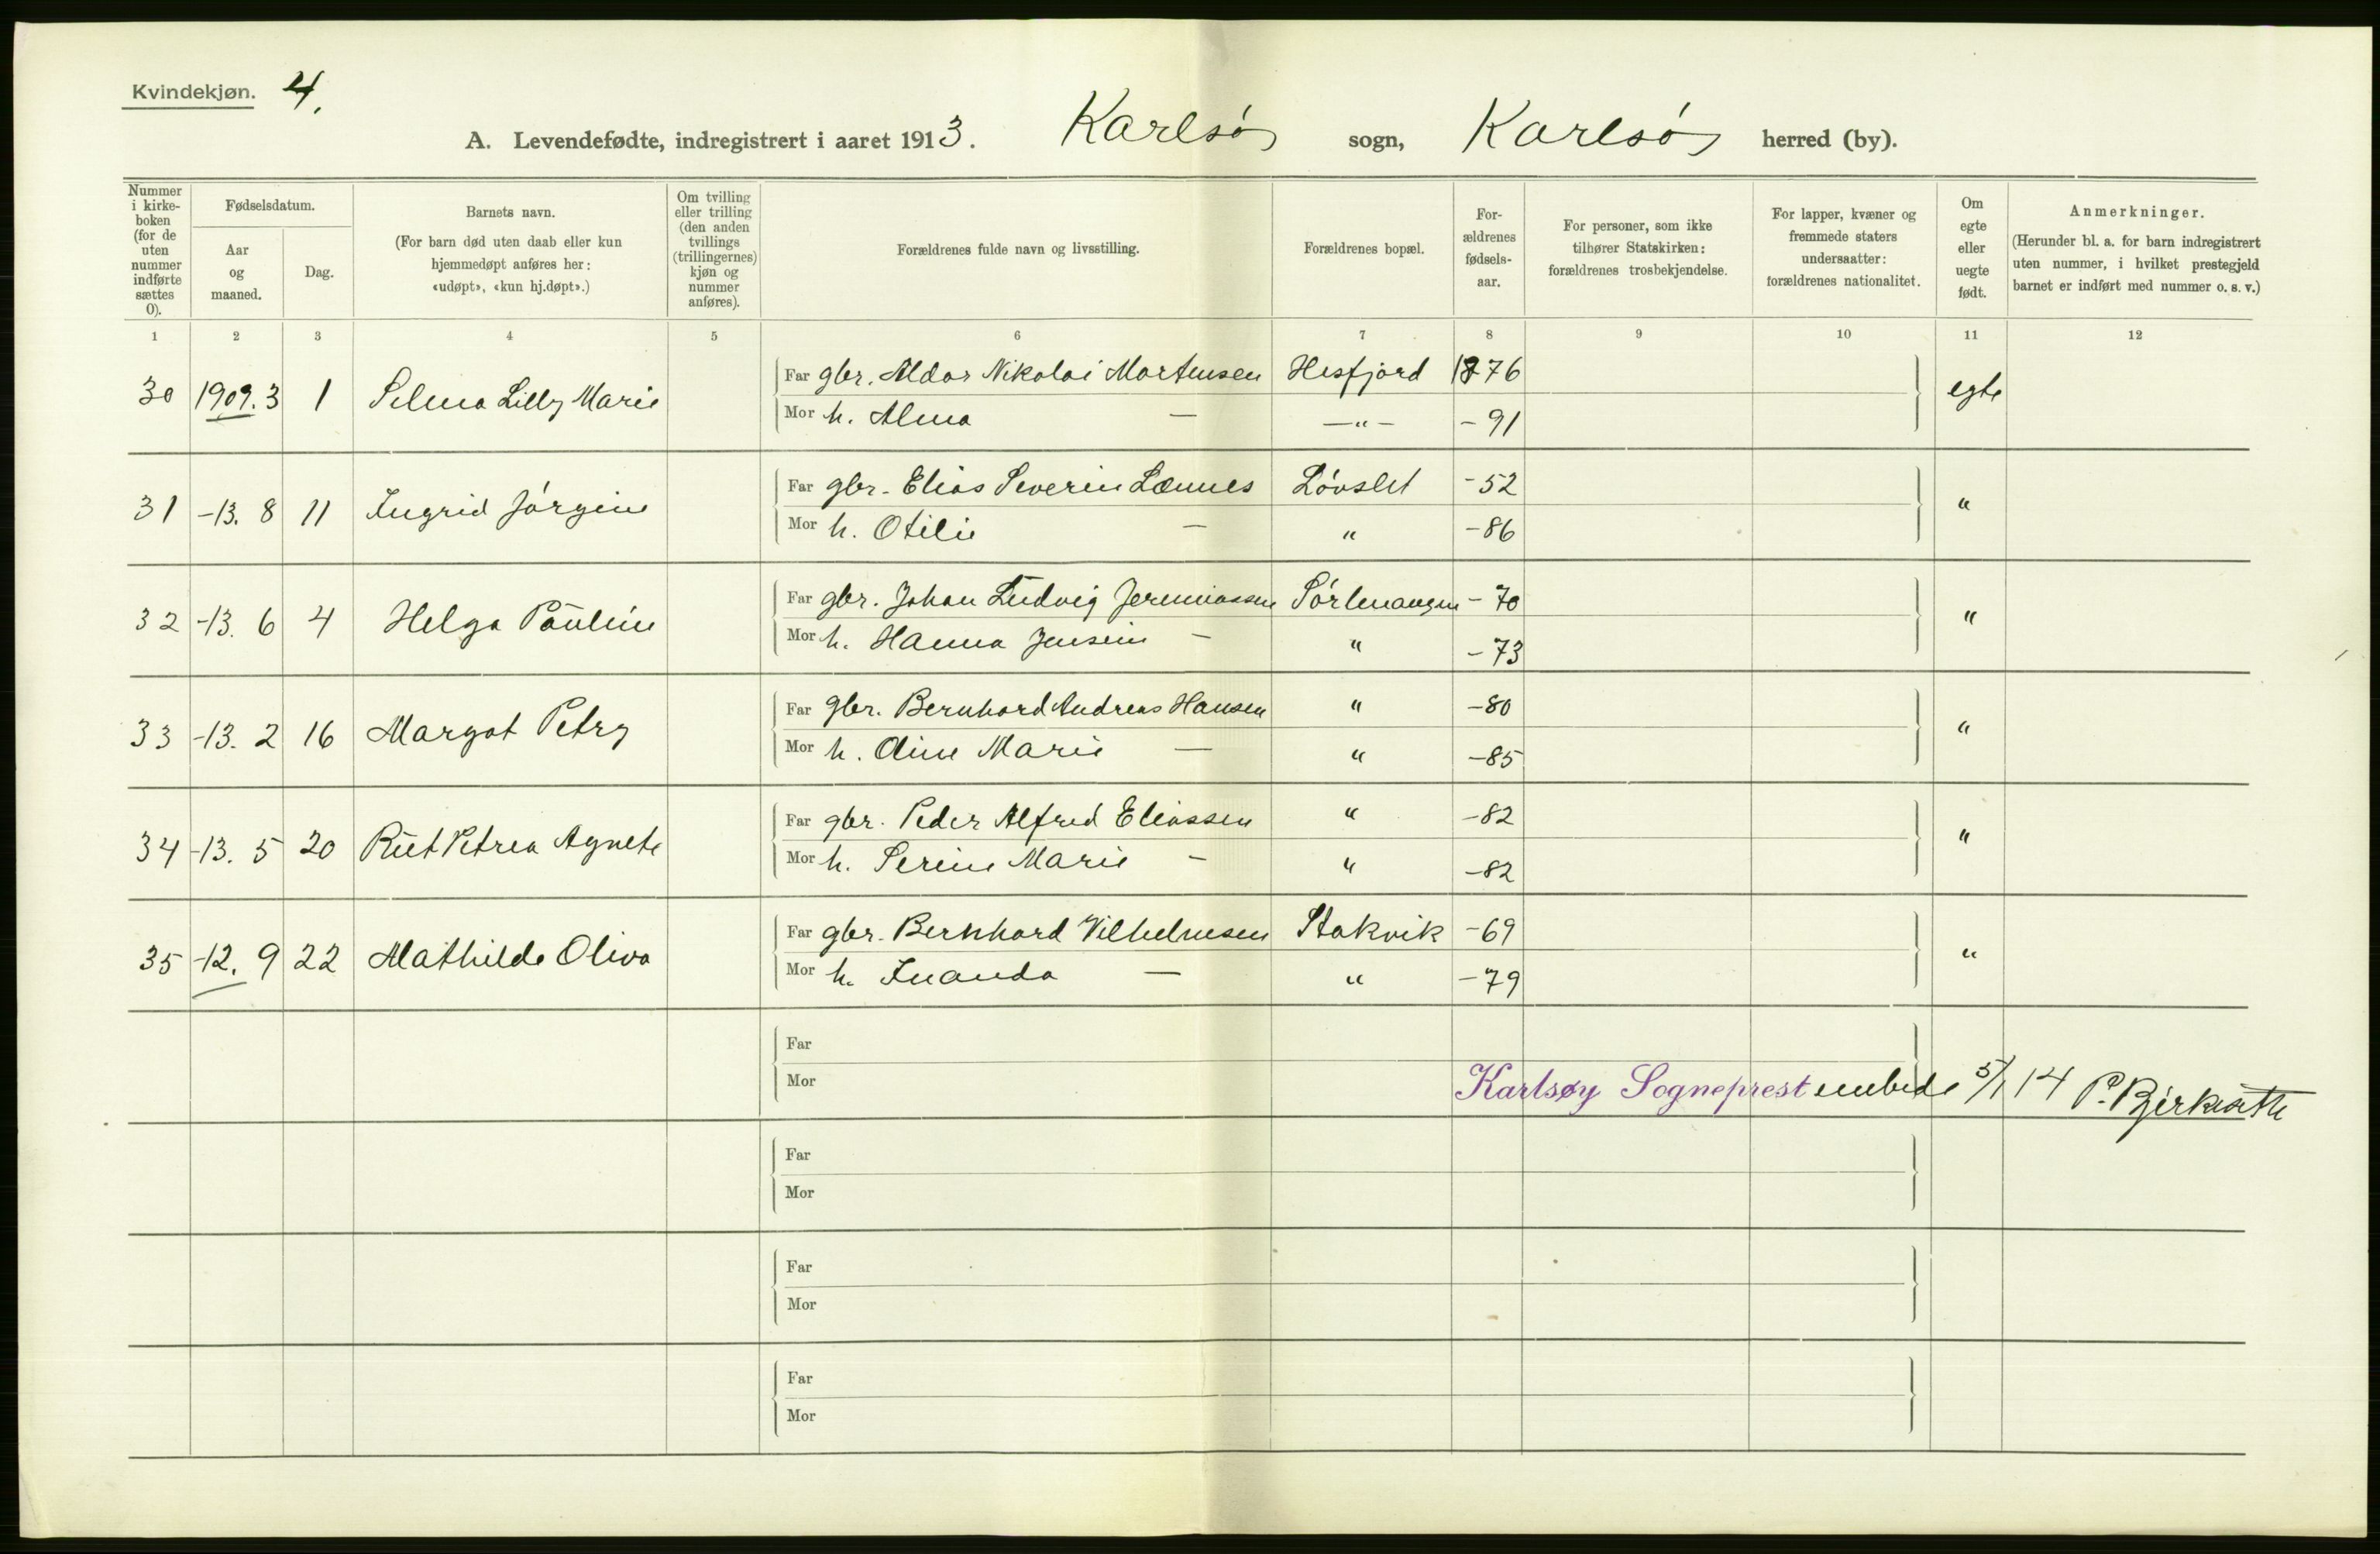 Kvindekjøn. 4.
A. Levendefødte, indregistrert i aaret 1913. Karlsøy sogn, Karlsøy herred (by).
Nummer i kirke- boken (for de uten nummer indførte sættes 0).
Fødselsdatum.
Aar og maaned.
Dag.
Barnets navn.
(For barn død uten daab eller kun hjemmedøpt anføres her: «udøpt», «kun hj.døpt».)
Om tvilling eller trilling (den anden tvillings (trillingernes) kjøn og nummer anføres).
Forældrenes fulde navn og livsstilling.
Forældrenes bopæl.
For- ældrenes fødsels- aar.
For personer, som ikke tilhører Statskirken: forældrenes trosbekjendelse.
For lapper, kvæner og fremmede staters undersaatter: forældrenes nationalitet.
Om egte eller uegte født.
Anmerkninger.
(Herunder bl. a. for barn indregistrert uten nummer, i hvilket prestegjeld barnet er indført med nummer o. s. v.)
1 2 3 4 5 6 7 8 9 10 11 12
30 1909. 3 1 Selma Lilly Marie Far gbr. Aldor Nikolai Mortensen Hesfjord 1876 egte
Mor h. Alma — —"— - 91
31 -13. 8 11 Ingrid Jørgine Far gbr. Elias Severin Lænnes Løvslet -52 "
Mor h. Otilie — " -86
32 -13. 6 4 Helga Pauline Far gbr. Johan Ludvig Jeremiassen Sørlenangen - 70 "
Mor h. Hanna Jensine — " -73
33 -13. 2 16 Margot Petry Far gbr. Bernhard Andreas Hansen " -80 "
Mor h. Oline Marie — " -85
34 -13. 5 20 Rut Petrea Agnete Far gbr. Peder Alfred Eliassen " -82 "
Mor h. Serine Marie — " -82
35 -12. 9 22 Mathilde Oliva Far gbr. Bernhard Vilhelmsen Stakvik -69 "
Mor h. Inanda — " -79
Far
Mor
Karlsøy Sogneprestembede 5/1 14 P. Bjerksæth
Far
Mor
Far
Mor
Far
Mor